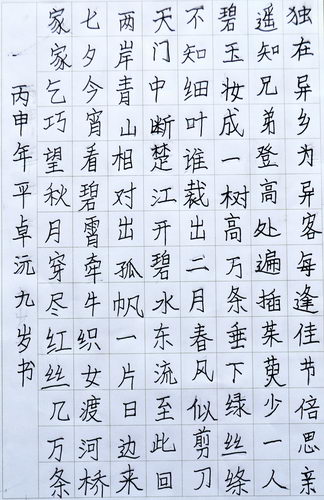 独在异乡为异客每逢佳节倍思亲
遥知兄弟登高处遍插茱萸少一人
碧玉妆成一树高万条垂下绿丝绦
不知细叶谁裁出二月春风似剪刀
天门中断楚江开碧水东流至此回
两岸青山相对出孤帆一片日边来
七夕今宵看碧霄牵牛织女渡河桥
家家乞巧望秋月穿尽红丝几万条
丙申年平卓沅九岁书